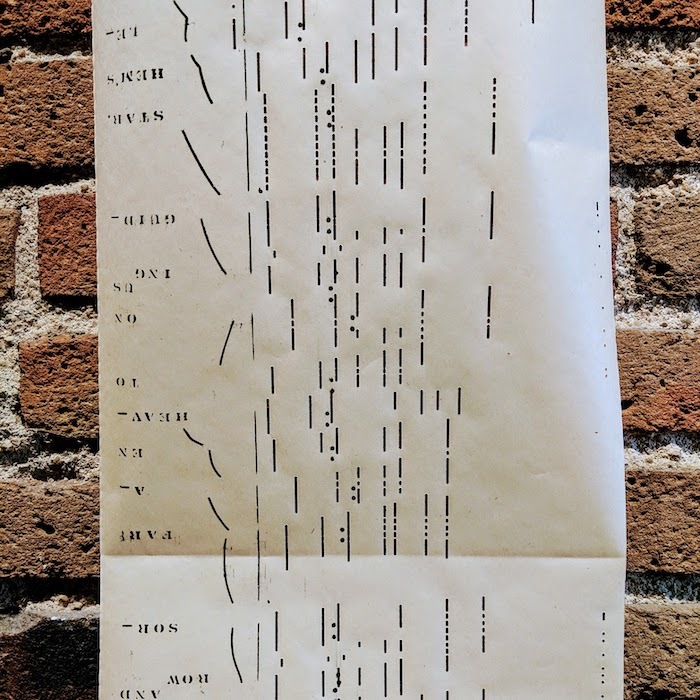 LE-
HEM'S
STAR,
GUID-
ING
US
ON
TO
HEAV-
EN
A-
FAR!
SOR-
ROW
AND